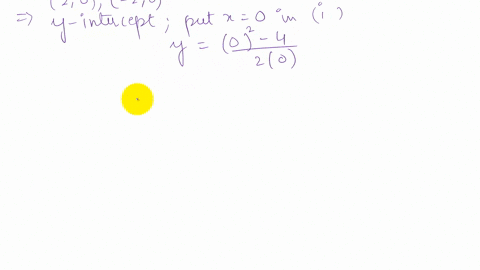 (2,0), (-2,0)
⇒ y-intercept ; put x = 0 in (i)
y = (0)² - 4 / 2(0)